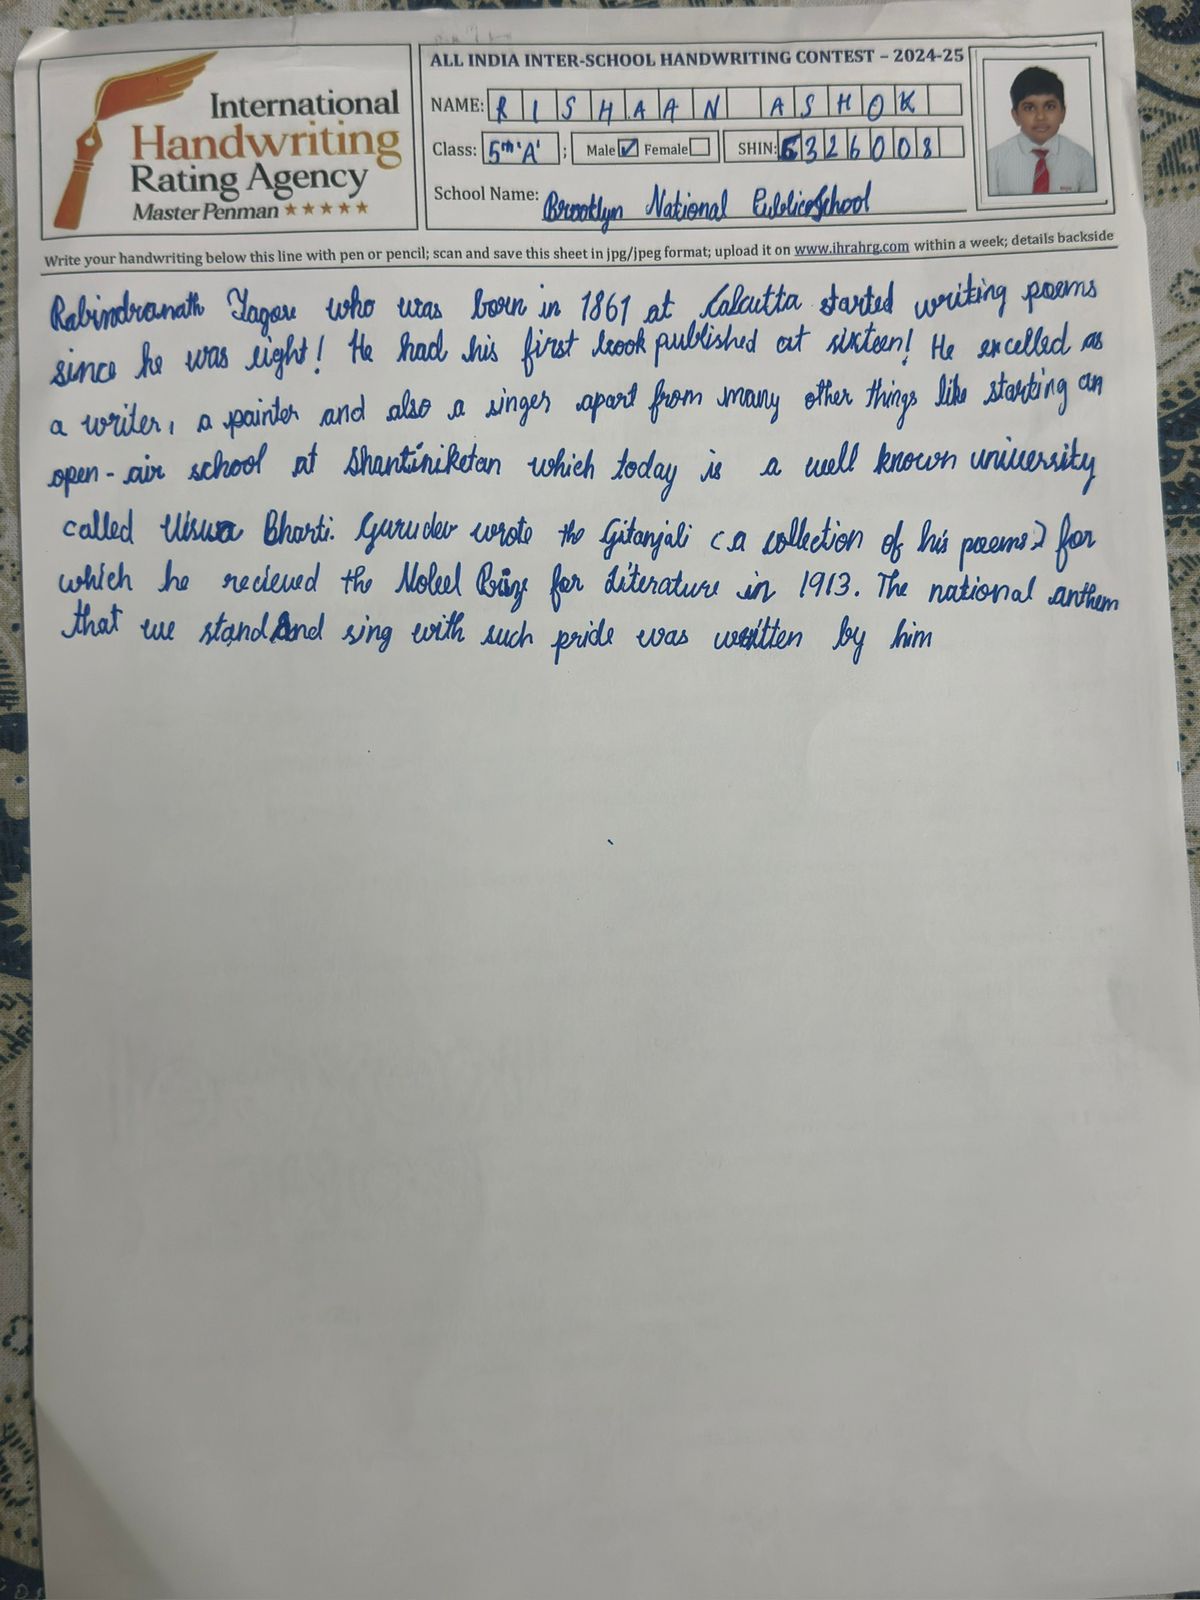 International
Handwriting
Rating Agency
Master Penman ★★★★★
ALL INDIA INTER-SCHOOL HANDWRITING CONTEST – 2024-25
NAME: RISHAAN ASHOK
Class: 5th 'A' ; Male ☑ Female ☐ SHIN: 6326008
School Name: Brooklyn National Public School
Write your handwriting below this line with pen or pencil; scan and save this sheet in jpg/jpeg format; upload it on www.ihrahrg.com within a week; details backside
Rabindranath Tagore who was born in 1861 at Calcutta started writing poems
since he was eight! He had his first book published at sixteen! He excelled as
a writer, a painter and also a singer apart from many other things like starting an
open-air school at Shantiniketan which today is a well known university
called Viswa Bharti. Gurudev wrote the Gitanjali (a collection of his poems) for
which he recieved the Nobel Prize for Literature in 1913. The national anthem
that we stand And sing with such pride was written by him